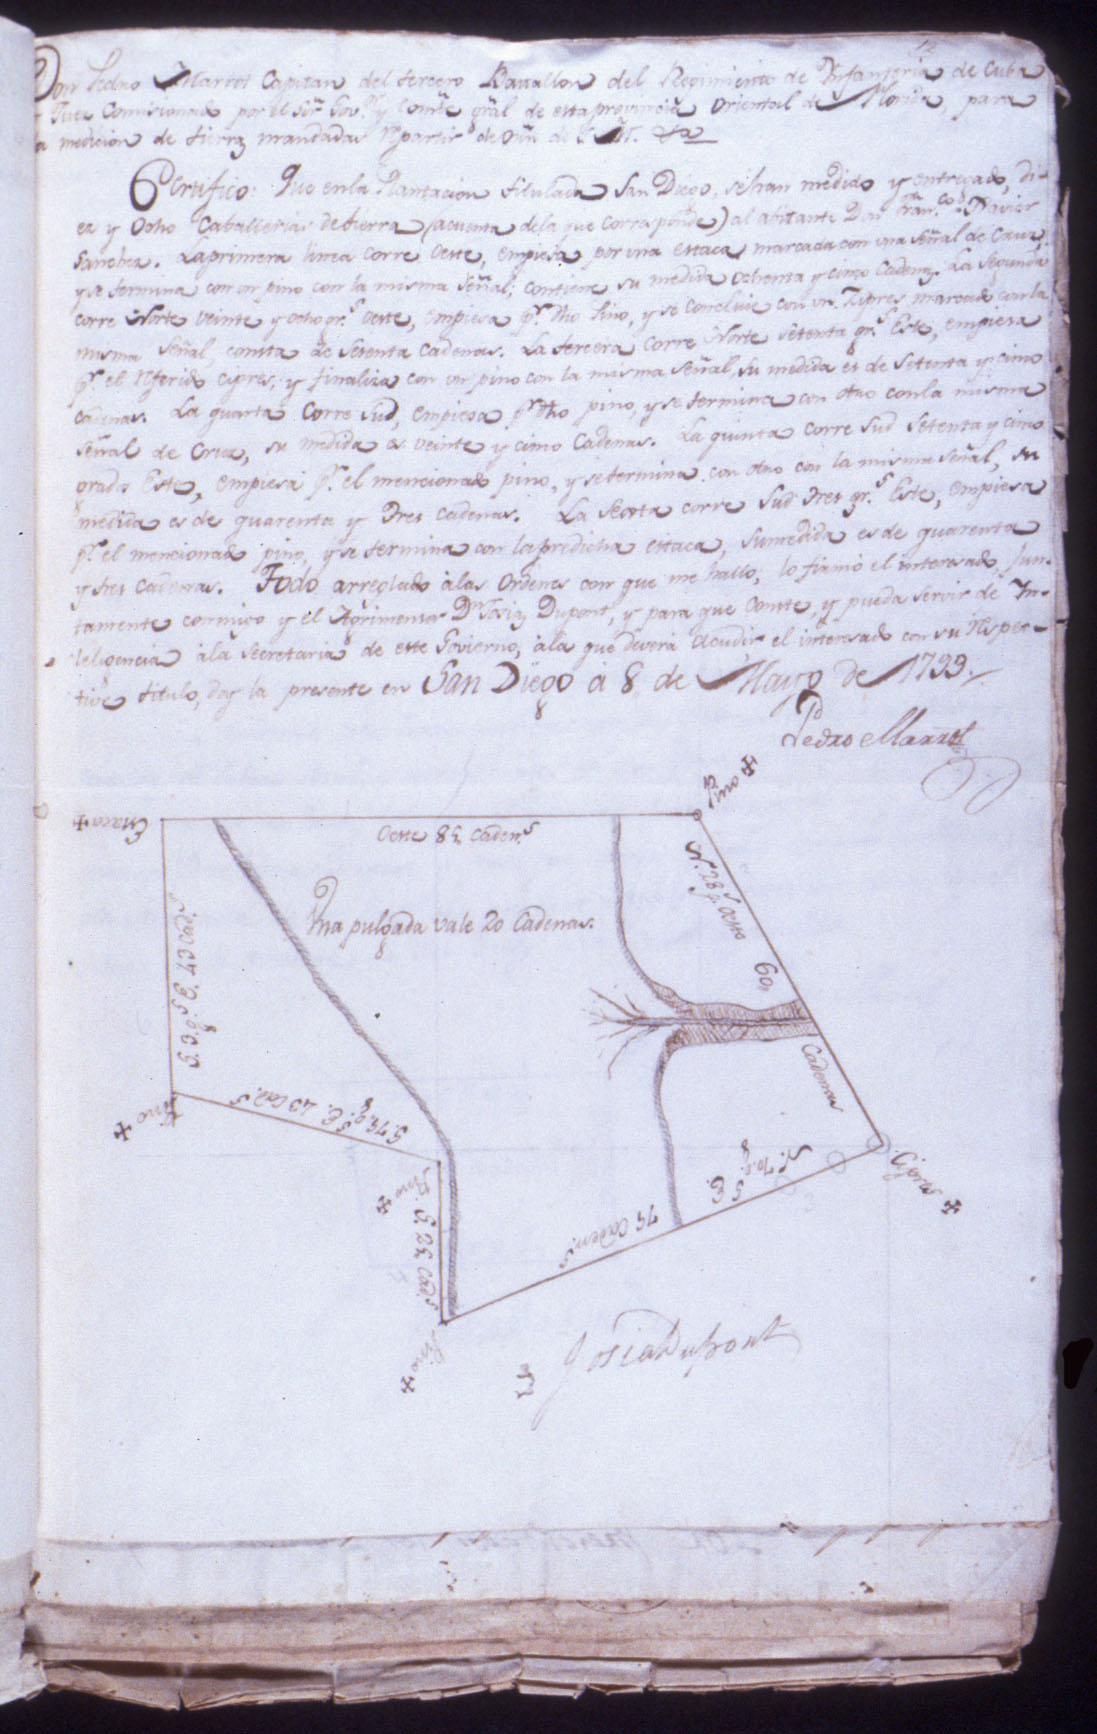 12
Don Pedro Marrot Capitan del tercero Battallon del Regimiento de Infanteria de Cuba
Juez Comisionado por el Sõr Gov.r y Comte gral de esta provincia Oriental de Florida, para
la medicion de tierras mandadas Repartir de Orñ de S. M. &a
Certifico: Que en la Plantacion titulada San Diego, se han medido y entregado, di-
ez y Ocho Caballerias de tierra (acuenta dela que corresponde) al abitante Don Fran.co Xavier
Sanchez. La primera linea corre Oeste, empiesa por una estaca marcada con una señal de Cruz,
y se termina con un pino con la misma señal; contiene su medida ochenta y cinco Cadenas. La Segunda
corre Norte veinte y ocho gr.s oeste, empiesa p.r dho Pino, y se concluie con un Zipres marcado con la
misma señal, consta de Setenta Cadenas. La tercera Corre Norte setenta gr.s Este, empiesa
p.r el Referido cipres, y finaliza con un pino con la misma señal, su medida es de Setenta y cinco
cadenas. La quarta Corre Sud, empiesa p.r dho pino, y se termina con otro con la misma
señal de Cruz, su medida es veinte y cinco Cadenas. La quinta corre Sud Setenta y cinco
grados Este, empiesa p.r el mencionado pino, y se termina con otro con la misma señal, su
medida es de quarenta y tres Cadenas. La Sexta corre Sud tres gr.s Este, empiesa
p.r el mencionado pino, y se termina con la predicha estaca, su medida es de quarenta
y tres Cadenas. Todo arreglado álas Ordenes con que me hallo; lo firmó el interesado, Jun-
tamente conmigo y el Agrimensor Dn Josias Dupont, y para que Conste, y pueda servir de In-
teligencia ála Secretaria de este Govierno, ála que deverá acudir el interesado con su Respec-
tivo titulo, doy la presente en San Diego á 8 de Mayo de 1793.
Pedro Marrot
Estaca
Oeste 85 Caden.s
Pino
N. 28 g.s Oesto
60
Cadenas
Una pulgada vale 20 Cadenas.
S. 3 g.s E. 43 Cad.s
Pino
S. 75 g.s E. 43 Cad.s
Pino
S. 25 Cad.s
Pino
75 Caden.s
N. 70 g.s E.
Cipres
Josia Dupont